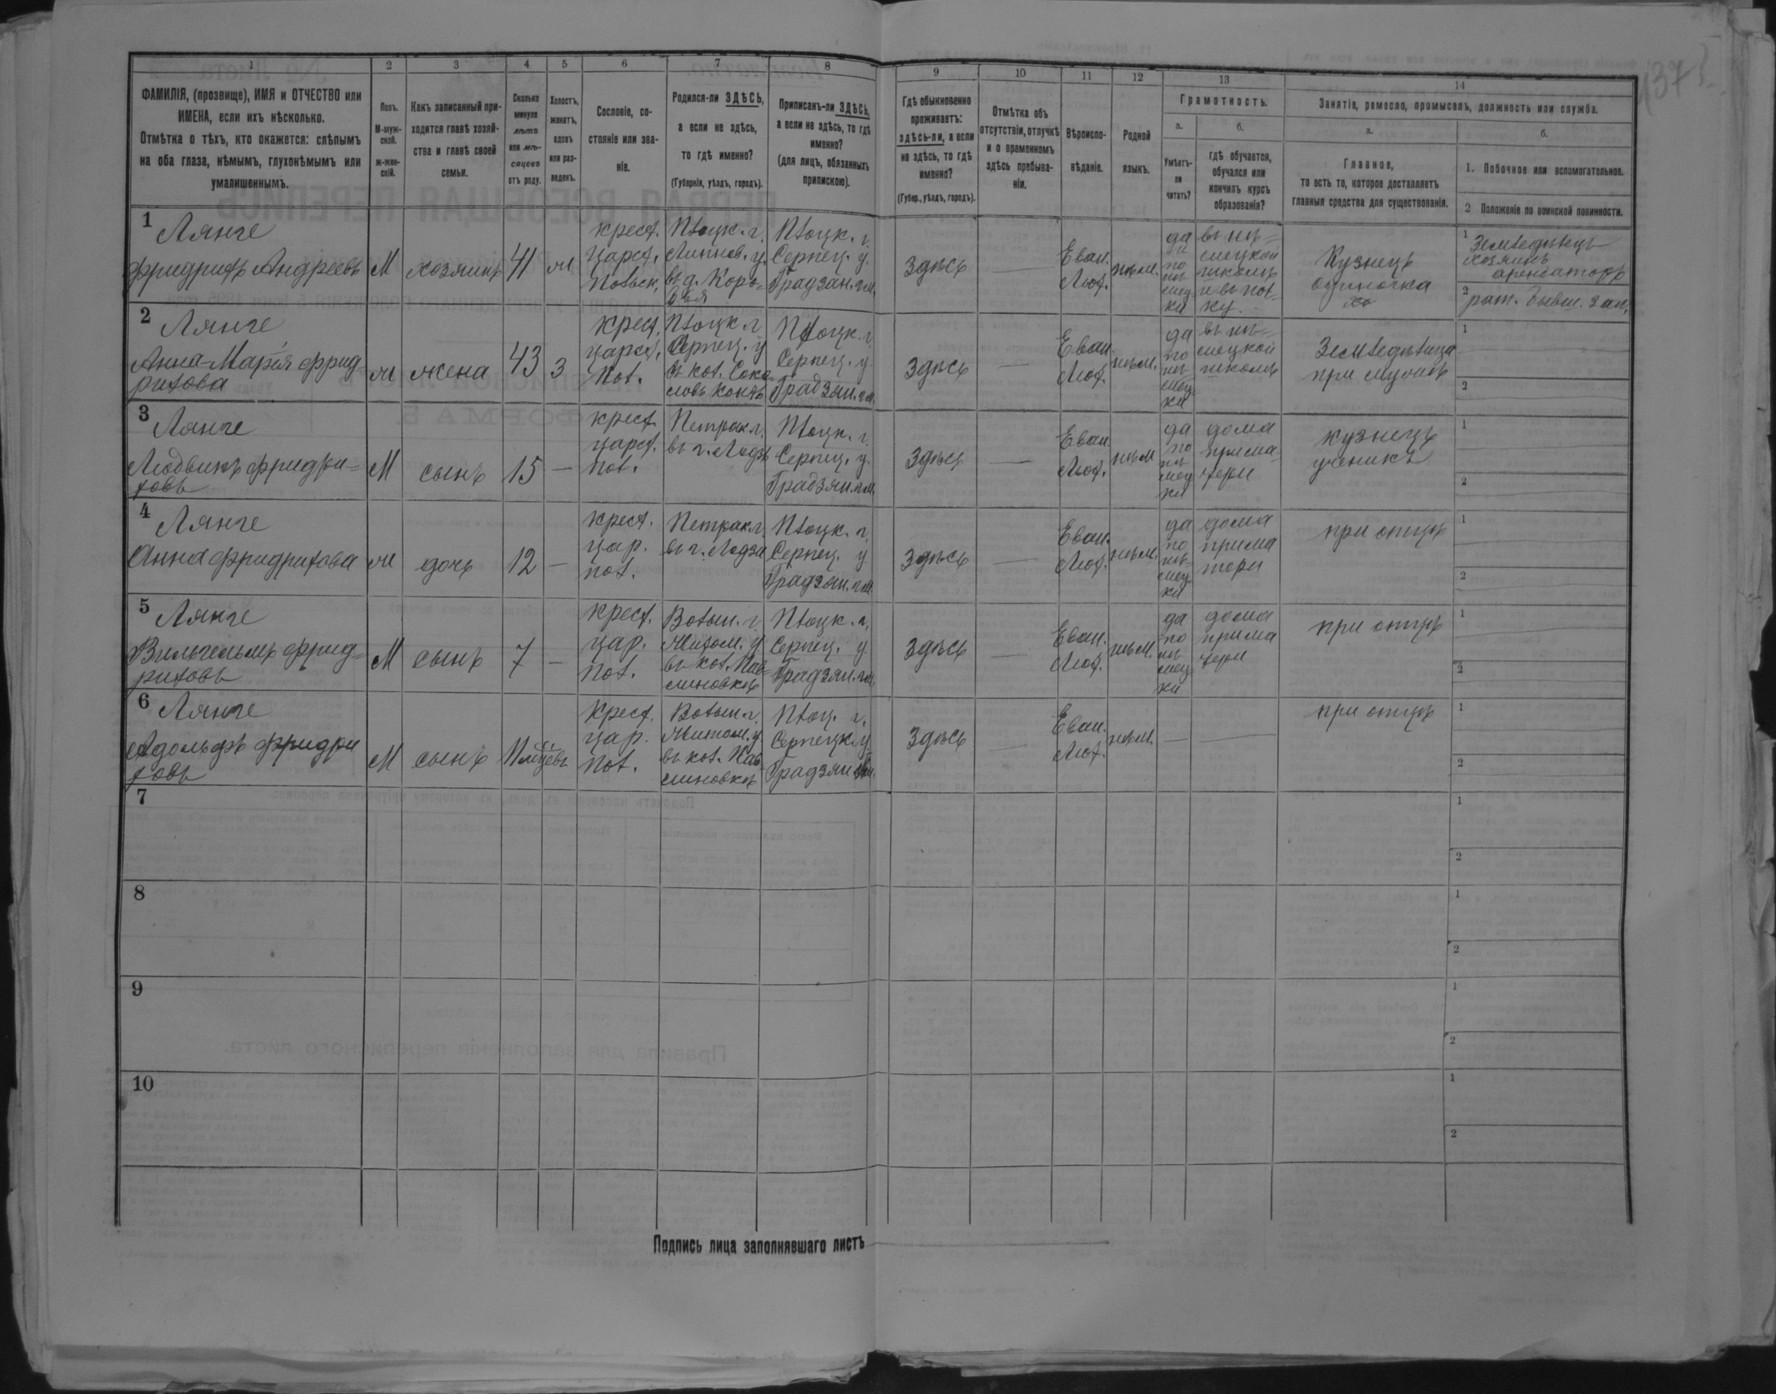 1 2 3 4 5 6 7 8 9 10 11 12 13 14
ФАМИЛІЯ, (прозвище), ИМЯ и ОТЧЕСТВО или
ИМЕНА, если ихъ нѣсколько.
Отмѣтка о тѣхъ, кто окажется: слѣпымъ
на оба глаза, нѣмымъ, глухонѣмымъ или
умалишеннымъ.
Полъ.
М-муж-
ской.
ж-жен-
скій.
Какъ записанный при-
ходится главѣ хозяй-
ства и главѣ своей
семьи.
Сколько
минуло
лѣтъ
или мѣ-
сяцевъ
отъ роду.
Холостъ,
женатъ,
вдовъ
или раз-
веденъ.
Сословіе, со-
стояніе или зва-
ніе.
Родился-ли ЗДѢСЬ,
а если не здѣсь,
то гдѣ именно?
(Губернія, уѣздъ, городъ).
Приписанъ-ли ЗДѢСЬ,
а если не здѣсь, то гдѣ
именно?
(для лицъ, обязанныхъ
припискою).
Гдѣ обыкновенно
проживаетъ:
здѣсь-ли, а если
не здѣсь, то гдѣ
именно?
(Губер., уѣздъ, городъ).
Отмѣтка объ
отсутствіи, отлучкѣ
и о временномъ
здѣсь пребыва-
ніи.
Вѣроиспо-
вѣданіе.
Родной
языкъ.
Грамотность.
а.
Умѣетъ-
ли
читать?
б.
гдѣ обучается,
обучался или
кончилъ курсъ
образованія?
Занятіе, ремесло, промыселъ, должность или служба.
а.
Главное,
то есть то, которое доставляетъ
главныя средства для существованія.
б.
1. Побочное или вспомогательное.
2 Положеніе по воинской повинности.
1
Лянге
Фридрихъ Андреевъ
М
хозяинъ
41
ж
крест.
царст.
Польск.
Плоцк. г.
Липнов. у.
въ д.
Плоцк. г.
Серпец. у.
Градзан. гм.
здѣсь
Еван.
Лют.
нѣм.
да
по
нѣ
мец
ки
въ нѣ=
мецкой
школѣ
Кузнецъ
одиночка
хо
1
Земледѣлецъ
хозяинъ
арендаторъ
2
рат.
2
Лянге
Анна-Марія Фрид-
рихова
ж
жена
43
З
крест.
царст.
Пол.
Плоцк. г.
Серпец. у
въ кол.
Плоцк. г.
Серпец. у.
Градзан. гм.
здѣсь
Еван.
Лют.
нѣм.
да
по
нѣ
мец
ки
въ нѣ=
мецкой
школѣ
Земледѣлица
при мужѣ
1
2
3
Лянге
Людвикъ Фридри=
ховъ
М
сынъ
15
крест.
царст.
Пол.
Петрок. г.
въ г. Лодзѣ
Плоцк. г.
Серпец. у.
Градзян. гм.
здѣсь
Еван.
Лют.
нѣм
да
по
нѣ
мец
ки
дома
при ма
тери
кузнецъ
ученикъ
1
2
4
Лянге
Анна Фридрихова
ж
дочь
12
крест.
цар.
пол.
Петрок. г.
въ г. Лодзѣ
Плоцк. г.
Серпец. у
Градзан. гм.
здѣсь
Еван.
Лют.
нѣм.
да
по
нѣ
мец
ки
дома
при ма
тери
при отцѣ
1
2
5
Лянге
Вильгельмъ Фрид=
риховъ
М
сынъ
7
крест.
цар.
пол.
Волын. г.
Житом. у
въ кол.
Плоцк. г.
Серпец. у
Градзян. гм.
здѣсь
Еван.
Лют.
нѣм.
да
по
нѣ
мец
ки
дома
при ма
тери
при отцѣ
1
2
6
Лянге
Адольфъ Фридри
ховъ
М
сынъ
11 мѣсяцевъ
крест.
цар.
пол.
Волын. г.
Житом. у
въ кол.
Плоц. г.
Серпецк. у
Градзян. гм.
здѣсь
Еван.
Лют.
нѣм.
при отцѣ
1
2
7
1
2
8
1
2
9
1
2
10
1
2
Подпись лица заполнявшаго листъ